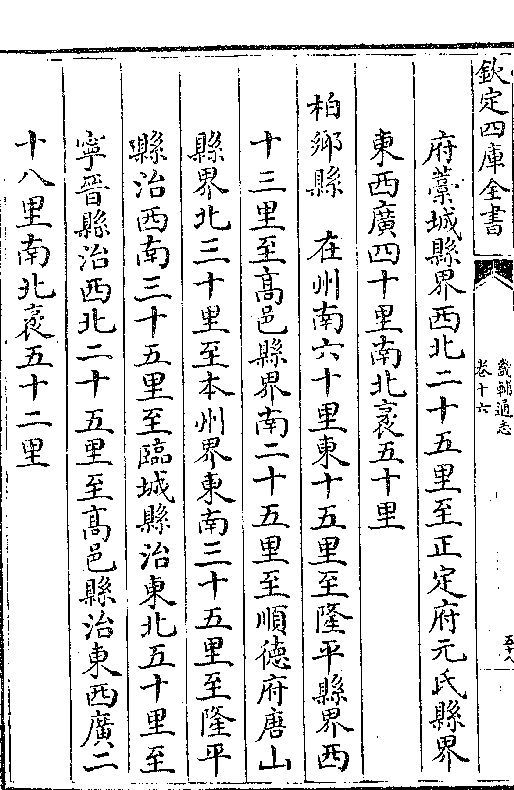 欽定四庫全書
畿輔通志
卷十六
至十八
府藁城縣界西北二十五里至正定府元氏縣界
東西廣四十里南北袤五十里
柏鄉縣 在州南六十里東十五里至隆平縣界西
十三里至高邑縣界南二十五里至順德府唐山
縣界北三十里至本州界東南三十五里至隆平
縣治西南三十五里至臨城縣治東北五十里至
寧晉縣治西北二十五里至高邑縣治東西廣二
十八里南北袤五十二里